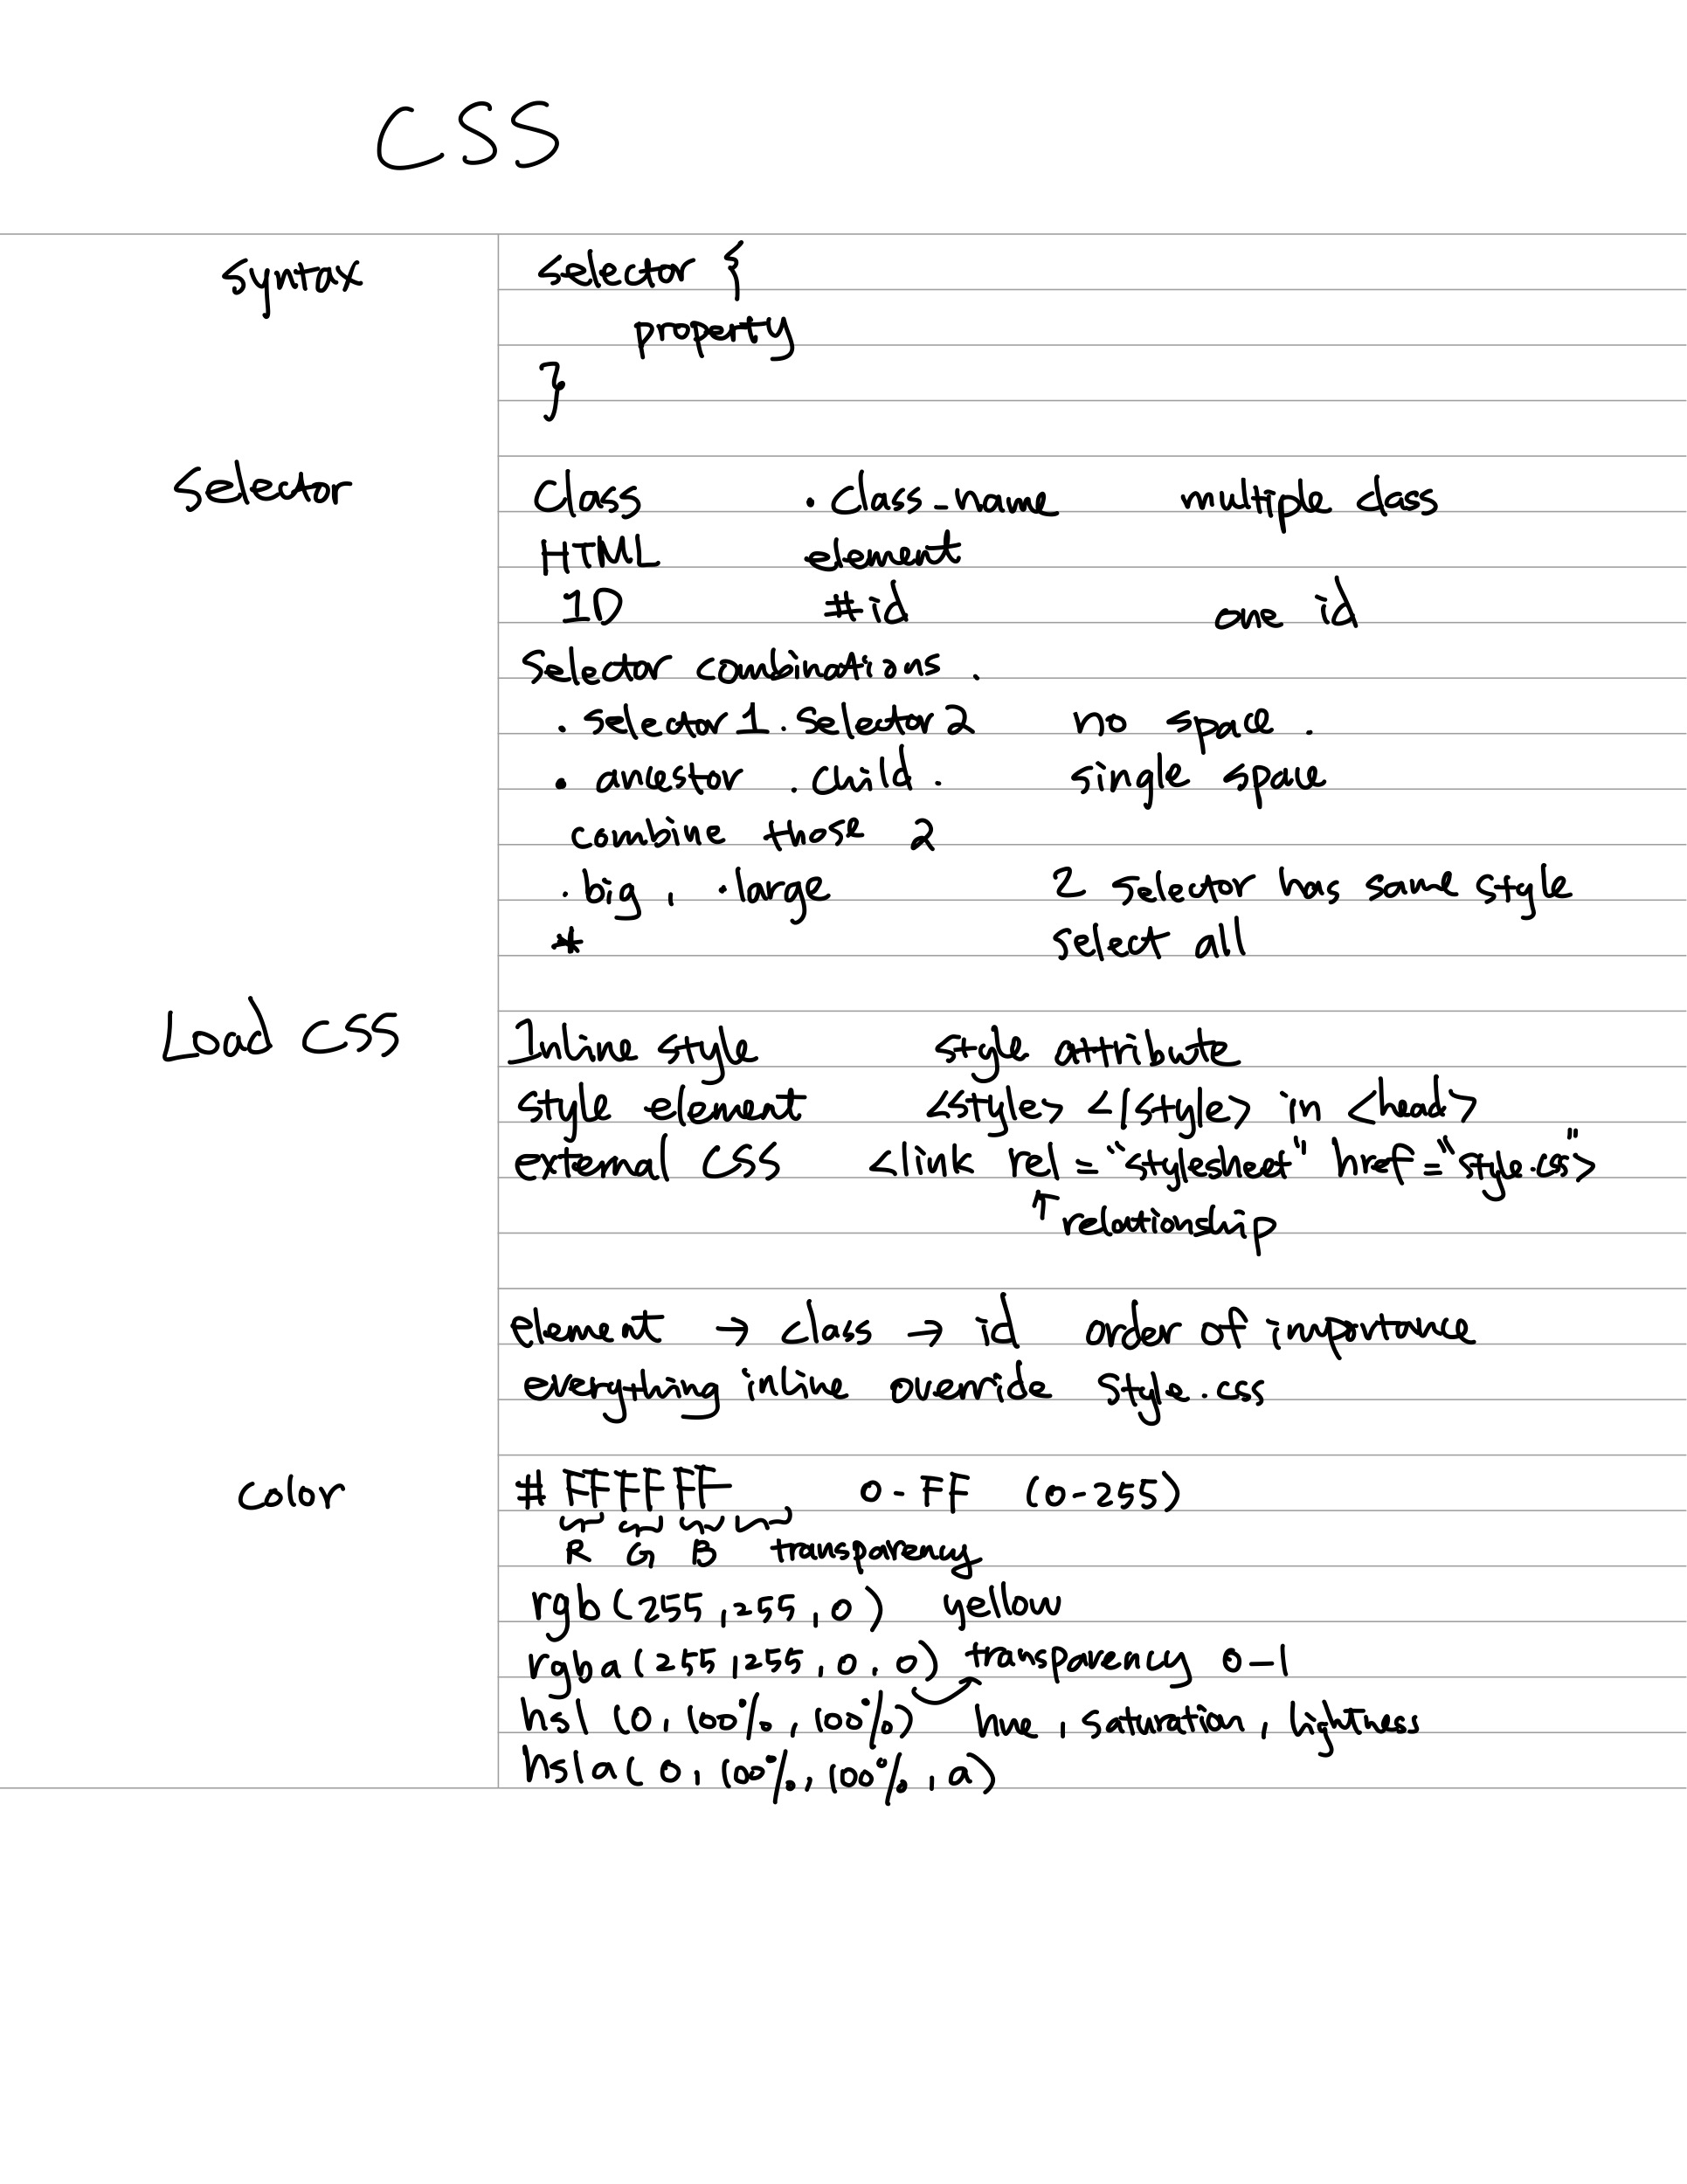 CSS
syntax selector {
property
}
Selector Class .class_name multiple class
HTML element
ID #id one id
Selector combinations.
.selector1.selector2 no space.
.ancestor .child. single space
combine those 2
.big, .large 2 selector has same style
* select all
Load CSS Inline style style attribute
style element <style> </style> in <head>
external CSS <link rel="stylesheet" href="style.css">
↑ relationship
element → class → id order of importance
everything inline override style.css
color #FFFFFF , 0-FF (0-255)
R G B transparency
rgb(255,255,0) yellow
rgba(255,255,0,0) transparency 0-1
hsl(0,100%,100%) hue, saturation, lightness
hsla(0,100%,100%,a)